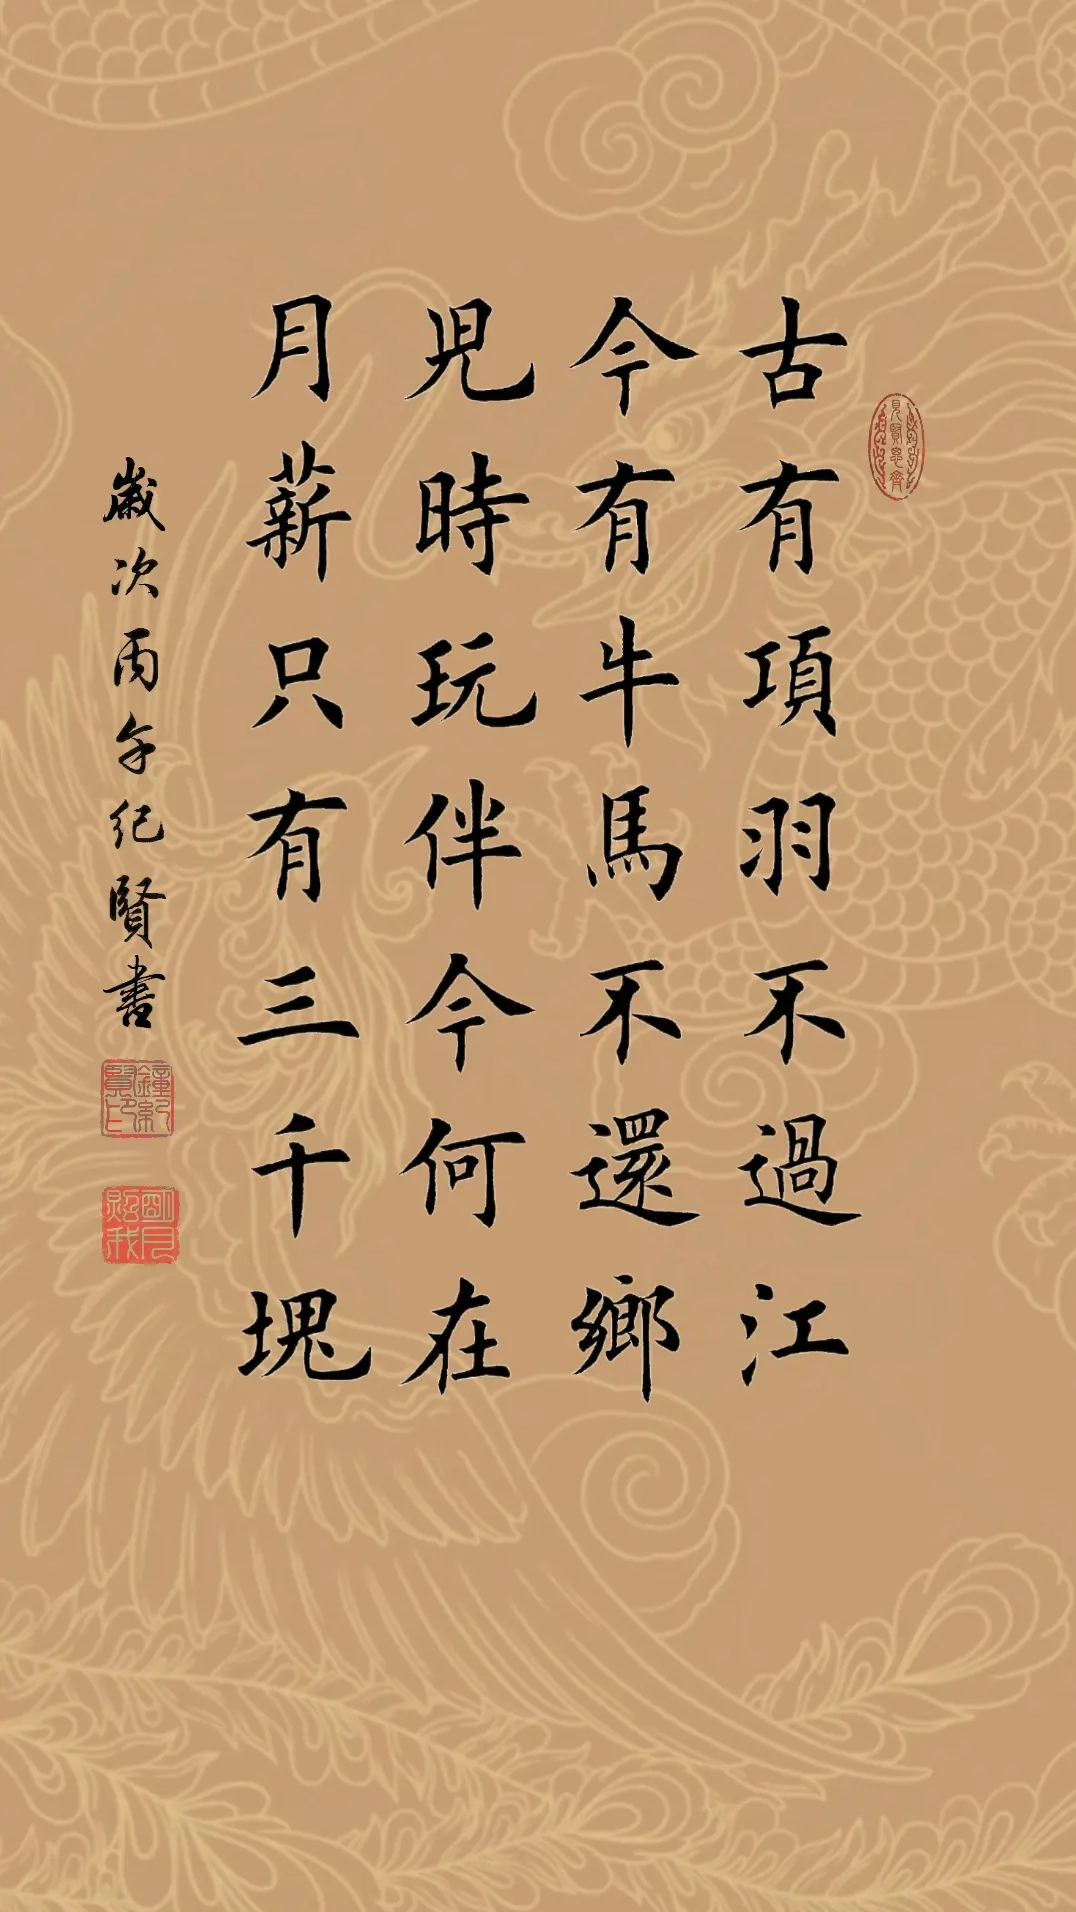 見賢思齊
古有項羽不過江
今有牛馬不還鄉
兒時玩伴今何在
月薪只有三千塊
歲次丙午紀賢書
鐘紀賢印